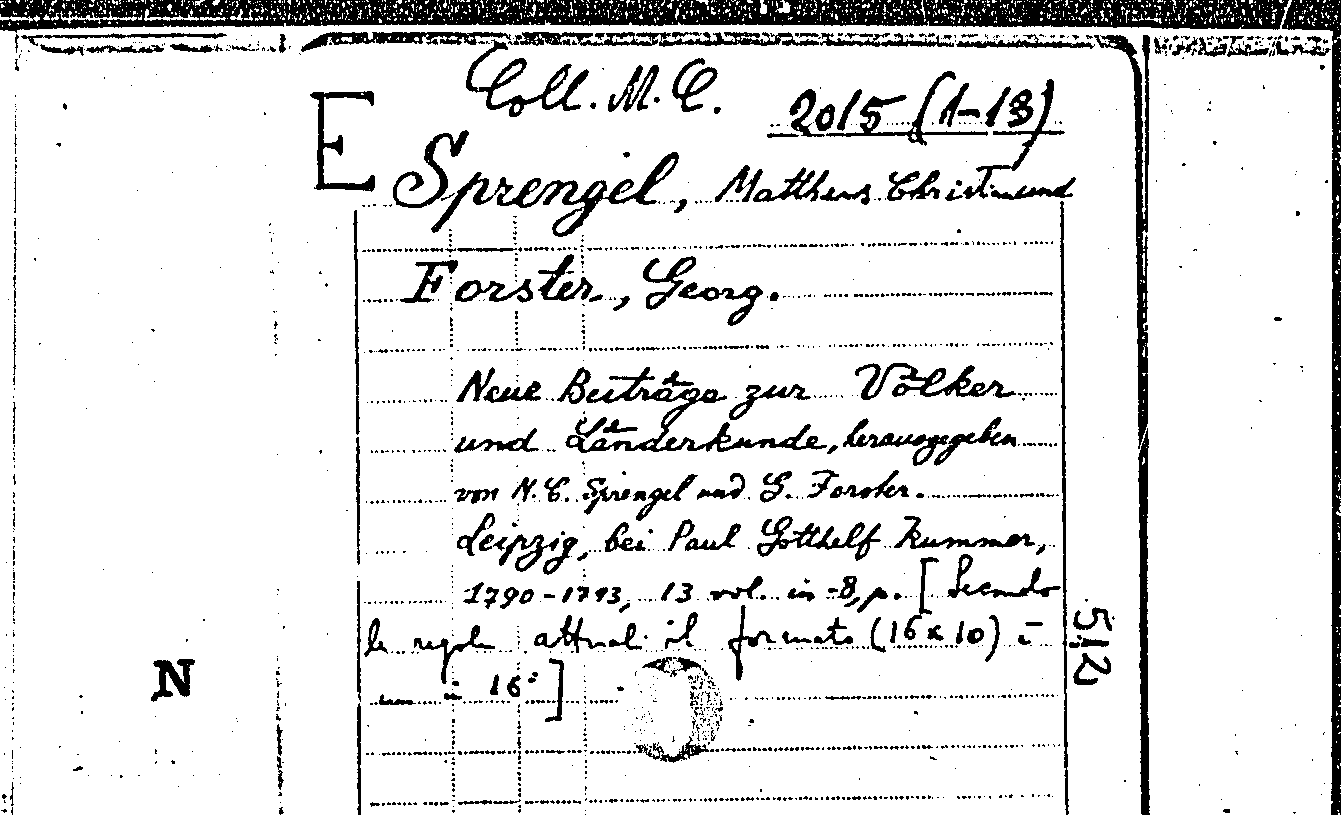 Coll. M. C.
2015 (1-13)
E
Sprengel, Mattheus Christian und
Forster, Georg.
Neue Beiträge zur Völker
und Länderkunde, herausgegeben
von M. C. Sprengel und G. Forster.
Leipzig, bei Paul Gotthelf Kummer,
1790-1793, 13 vol. in-8, p. [Secondo
le regole attuali il formato (16x10) è
in 16°]
N
512